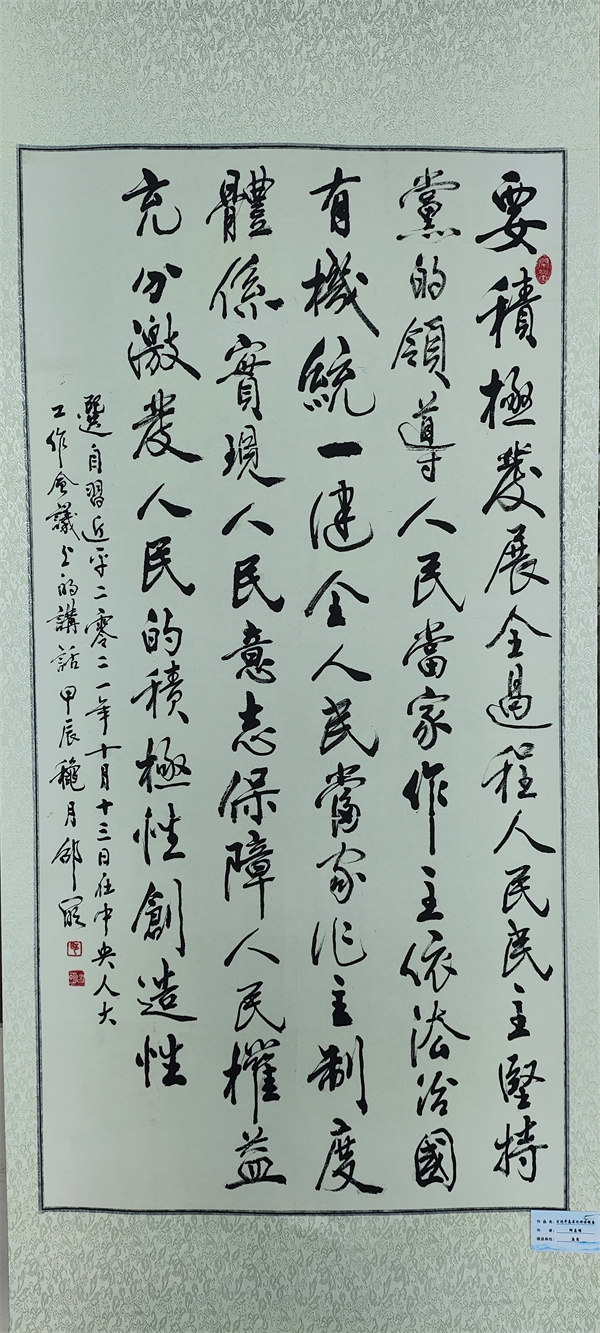 要積極發展全過程人民民主堅持
黨的領導人民當家作主依法治國
有機統一健全人民當家作主制度
體係實現人民意志保障人民權益
充分激發人民的積極性創造性
選自習近平二零二一年十月十三日在中央人大
工作會議上的講話 甲辰龝月邵